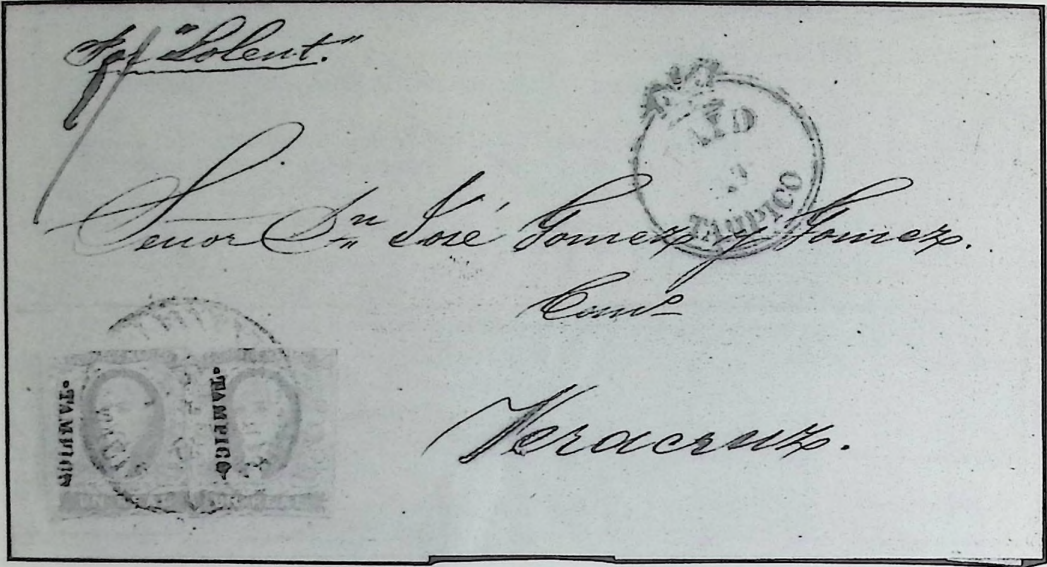 Por "Solent."
PAID
TAMPICO
Señor Dn José Gomez y Gomez.
Como
Veracruz.
·TAMPICO·
·TAMPICO·